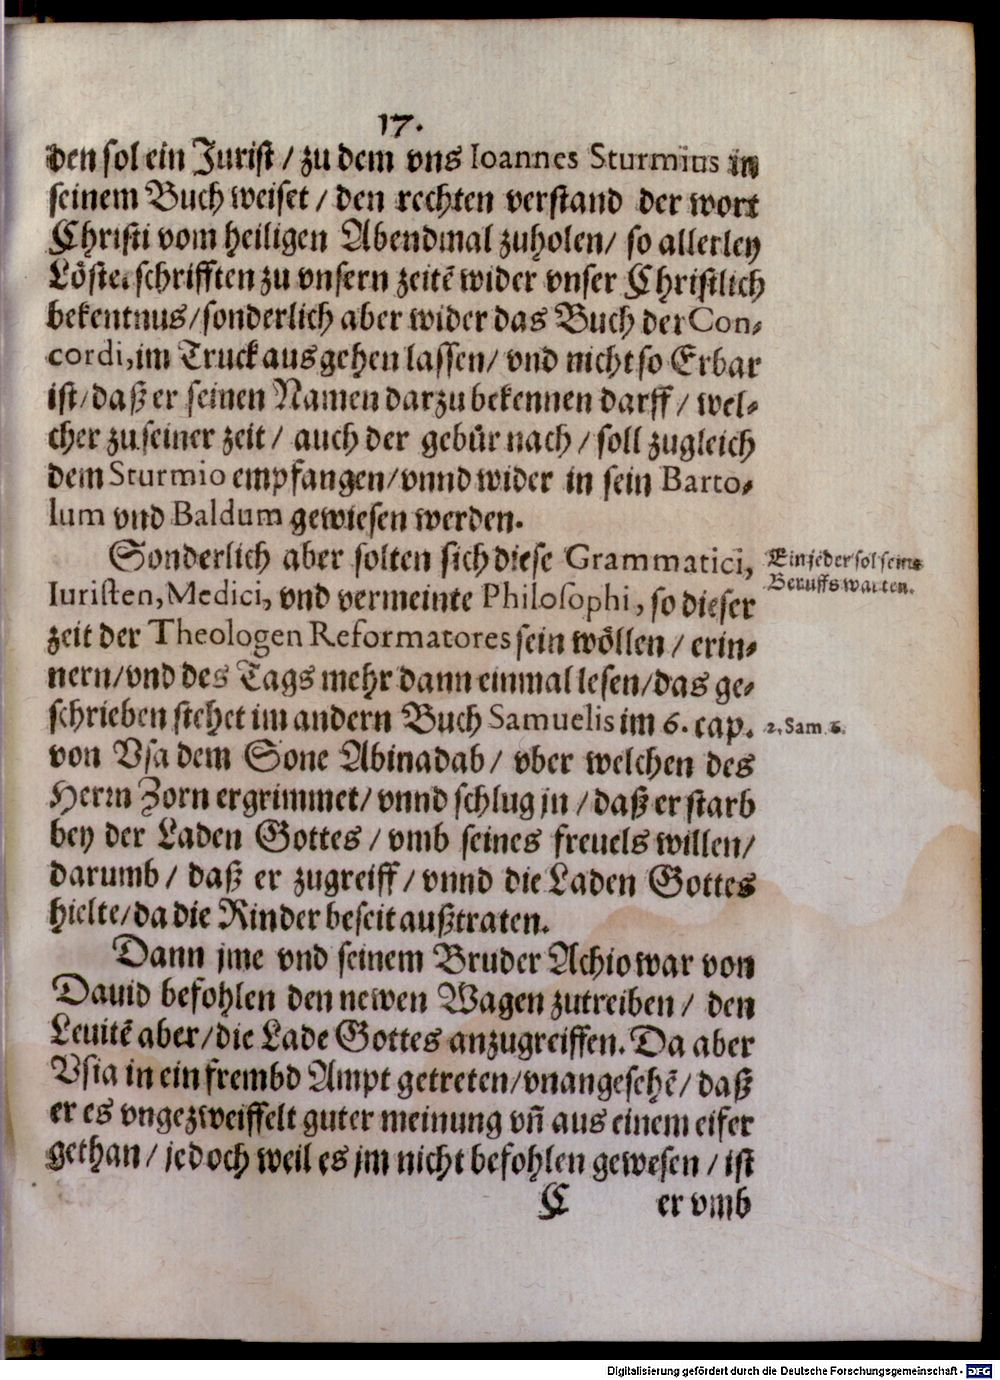 17.
den sol ein Jurist / zu dem vns Ioannes Sturmius in
seinem Buch weiset / den rechten verstand der wort
Christi vom heiligen Abendmal zuholen / so allerley
Lösterschrifften zu vnsern zeitẽ wider vnser Christlich
bekentnus / sonderlich aber wider das Buch der Con-
cordi, im Truck ausgehen lassen / vnd nicht so Erbar
ist / daß er seinen Namen darzu bekennen darff / wel-
cher zu seiner zeit / auch der gebür nach / soll zugleich
dem Sturmio empfangen / vnnd wider in sein Barto-
lum vnd Baldum gewiesen werden.
Sonderlich aber solten sich diese Grammatici,
Iuristen, Medici, vnd vermeinte Philosophi, so dieser
zeit der Theologen Reformatores sein wöllen / erin-
nern / vnd des Tags mehr dann einmal lesen / das ge-
schrieben stehet im andern Buch Samuelis im 6. cap.
von Vsa dem Sone Abinadab / vber welchen des
Herrn Zorn ergrimmet / vnnd schlug jn / daß er starb
bey der Laden Gottes / vmb seines freuels willen /
darumb / daß er zugreiff / vnnd die Laden Gottes
hielte / da die Rinder beseit außtraten.
Dann jme vnd seinem Bruder Achio war von
Dauid befohlen den newen Wagen zutreiben / den
Leuitẽ aber / die Lade Gottes anzugreiffen. Da aber
Vsia in ein frembd Ampt getreten / vnangesehẽ / daß
er es vngezweiffelt guter meinung vñ aus einem eifer
gethan / jedoch weil es jm nicht befohlen gewesen / ist
C er vmb
Ein jeder sol seins
Beruffs warten.
2. Sam. 6.
Digitalisierung gefördert durch die Deutsche Forschungsgemeinschaft - DFG